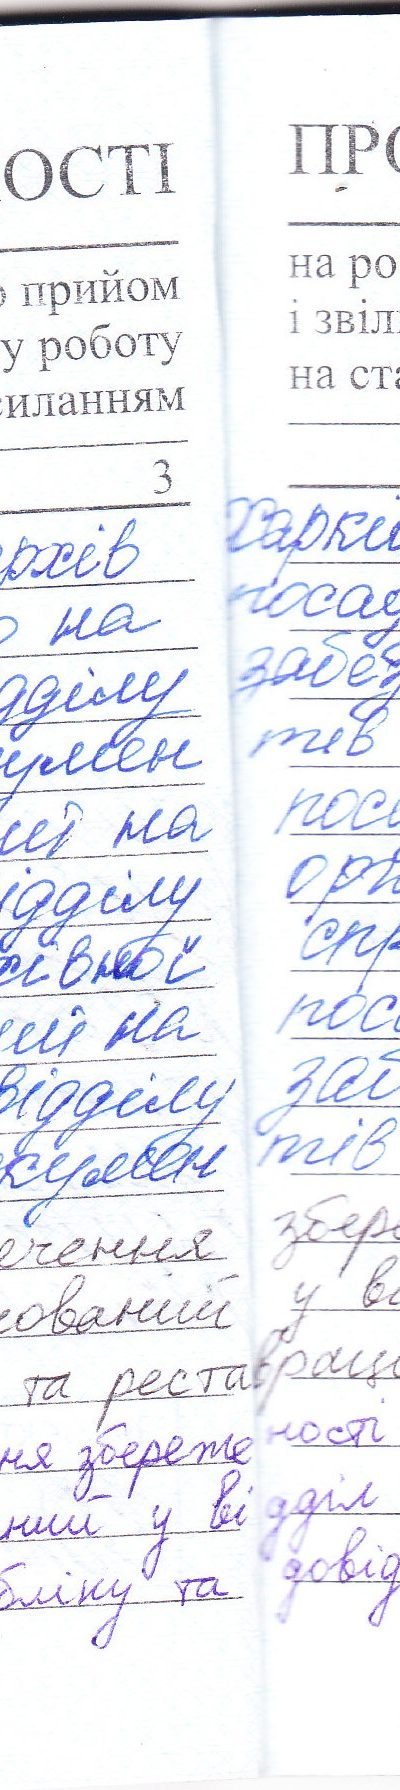 ОСТІ
о прийом
у роботу
силанням
3
рхів
о на
дділу
умен
ий на
ідділу
сівної
ий на
відділу
кумен
ечення
кований
та реста
ня збереже
ний у ві
бліку та
ПРО
на ро
і звіл
на ста
Харкі
посад
забез
тів
поса
орга
спр
поса
заб
тів
збере
у ві
враці
ності
дділ
довід